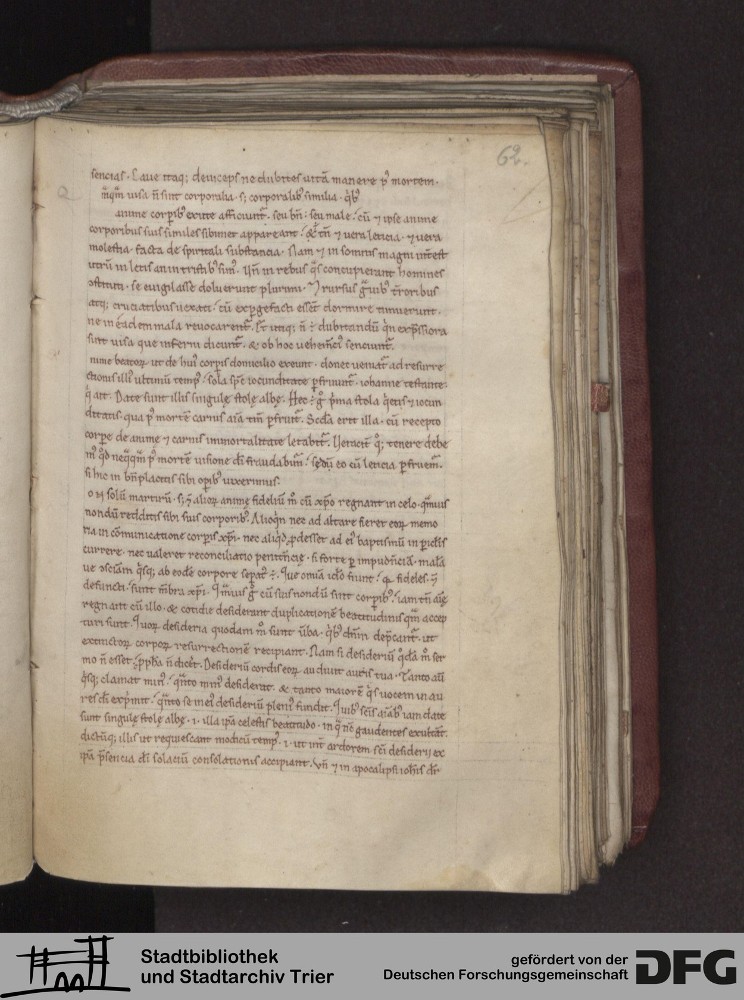 69r.
sencias. Caue itaq; deinceps ne dubites uitā manere p mortem.
qm̄ uisa n̄ sint corporalia. s; corporalib; similia. qb;
anime corpib; exute afficiunt̄. seu bn̄. seu male. cū ⁊ ipse anime
corporibus suis similes sibimet appareant. & tn̄ ⁊ uera leticia. ⁊ uera
molestia. facta de spiritali substancia. Nam ⁊ in somnis magni int̄est
utrū in letis an in tristib; sim;. Vn̄ in rebus qs concupierant homines
se euigilasse doluerunt plurimi. ⁊ rursus g̃uib; t̄roribus
atq; cruciatibus uexati. cū exp̄gefacti essent dormire timuerunt.
ne in eadem mala reuocarent̄. itaq; n̄ ÷ dubitandū qn exp̄ssiora
sint uisa que inferni dicunt̄. & ob hoc uehem̄ci senciunt̄.
nime beatoꝝ ut de hui; corpis domicilio exeunt. donec ueniat ad resurre
ctionis illi; ultimū temp;. sola spe iocunditate pfruunt̄. iohanne testante.
q̇ ait. Date sunt illis singule stole albe. Hec ÷ g̊ pma stola ⁊ iocun
ditatis qua p mortē carnis aīa tm̄ pfruit̄. Scda erit illa. cū recepto
corpe de anime ⁊ carnis immortalitate letabit̄. tenere debe
m; qd neqq̄m p mortē uisione di fraudabim̄. sed eo cū leticia pfruem̄.
si hic in bn̄placitis sibi opib; uixerimus.
on solū martirū. s; ⁊ alioꝝ anime fideliū cū xp̄o regnant in celo. qmuis
nondū redditis sibi suis corporib;. Alioqn nec ad altare fieret eoꝝ memo
ria in cōmunicatione corpis xp̄i. nec aliqd pdesset ad ei; baptismū in piclis
currere. nec ualeret reconciliatio penitēcie. si forte p impudiciciā. malā
ue ꝯsciam qsq; ab eodē corpore sepat; ÷. Que omia ideo fiunt. q fideles ⁊
defuncti. sunt mbra xp̄i. Qmuis g̊ cū suis nondū sint corpib;. iam tn̄ aīe
regnant cū illo. & cotidie desiderant duplicationē beatitudinis qm accep
turi sunt. Quoꝝ desideria quodam m̊ sunt ūba. qb; dn̄m dep̄cant̄. ut
extinctoꝝ corpoꝝ resurrectionē recipiant. Nam si desideriū qda m̊ ser
mo n̄ esset. ppha n̄ dicēt. Desideriū cordis eoꝝ audiuit auris tua. Tanto aū
qsq; clamat min;. qnto min; desiderat. & tanto maiorē qs uocem in au
res di exprimit. qnto se in ei; desideriū pleni; fundit. Quib; scis aīab; iam date
sunt singule stole albe. i. illa ipa celestis beatitudo. in q nc̄ gaudentes exultāt.
dictūq; illis ut requiescant modicū temp;. i. ut int̄ ardorem sci desiderii ex
ipa p̄sencia di solaciū consolationis accipiant. Vn̄ ⁊ in apocalipsi ioh̄is dr̄
Stadtbibliothek
und Stadtarchiv Trier
gefördert von der
Deutschen Forschungsgemeinschaft
DFG